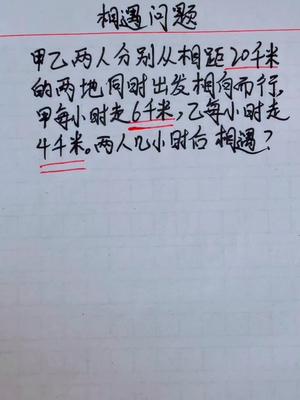 相遇问题
甲乙两人分别从相距20千米
的两地同时出发相向而行,
甲每小时走6千米,乙每小时走
4千米。两人几小时后相遇?